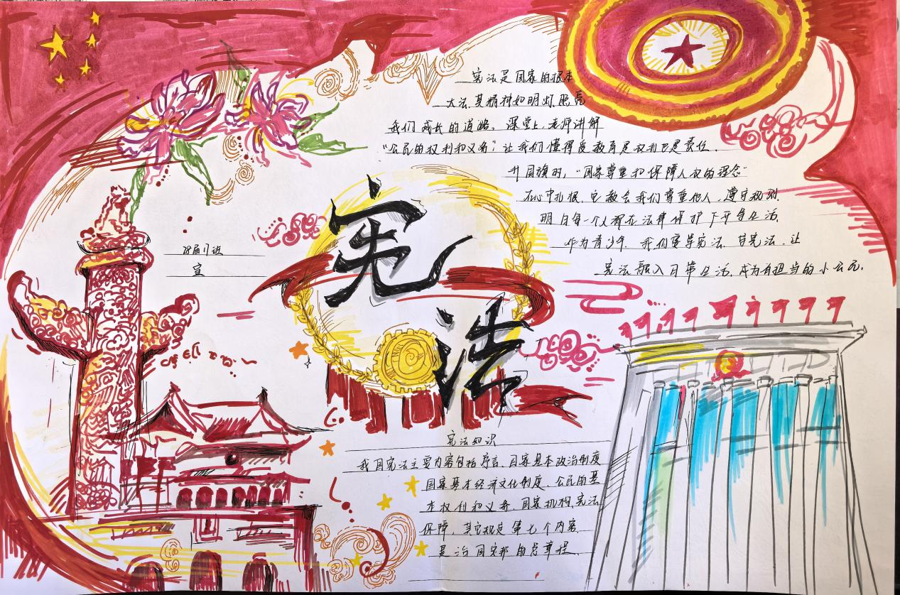 宪法是国家的根本
大法,其精神如明灯照亮
我们成长的道路。课堂上,老师讲解
“公民的权利和义务”,让我们懂得受教育是权利也是责任。
升国旗时,“国家尊重和保障人权的理念”
在心中扎根,它教会我们尊重他人,遵守规则
明白每个人都在法律保护下平等生活。
作为青少年,我们要学宪法,讲宪法,让
宪法融入日常生活,成为有担当的小公民。
宪
法
宪法知识
我国宪法主要内容包括序言、国家基本政治制度
国家基本经济文化制度、公民的基
本权利和义务、国家机构、宪法
保障,其它规定等七个内容
是治国安邦的总章程